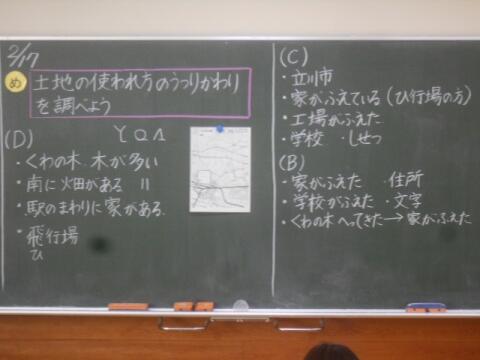 2/17
め 土地の使われ方のうつりかわり
を調べよう
(D)
・くわの木、木が多い
・南に畑がある 〃
・駅のまわりに家がある
・飛行場
ひ
(C)
・立川市
・家がふえている(ひ行場の方)
・工場がふえた
・学校 ・しせつ
(B)
・家がふえた ・住所
・学校がふえた ・文字
・くわの木へってきた→家がふえた